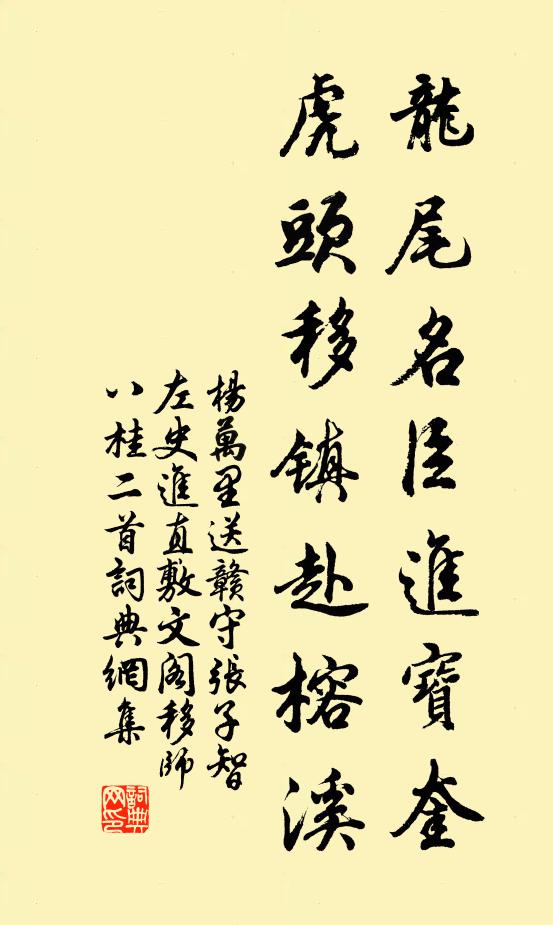 龍尾名臣進寶奎
虎頭移鎮赴榕溪
楊萬里送贛守張子智
左史進直敷文閣移師
八桂二首詞典網集
詞典網印